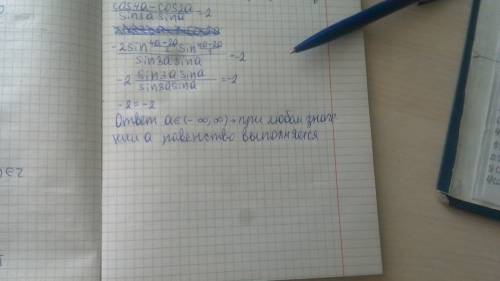 cos4a-cos2a / sin3a sina = -2
-2sin 4a-2a/2 sin 4a-2a/2 / sin3a sina = -2
-2 sin3a sina / sin3a sina = -2
-2=-2
Ответ a∈(-∞,∞) при любом значе
нии а равенство выполняется